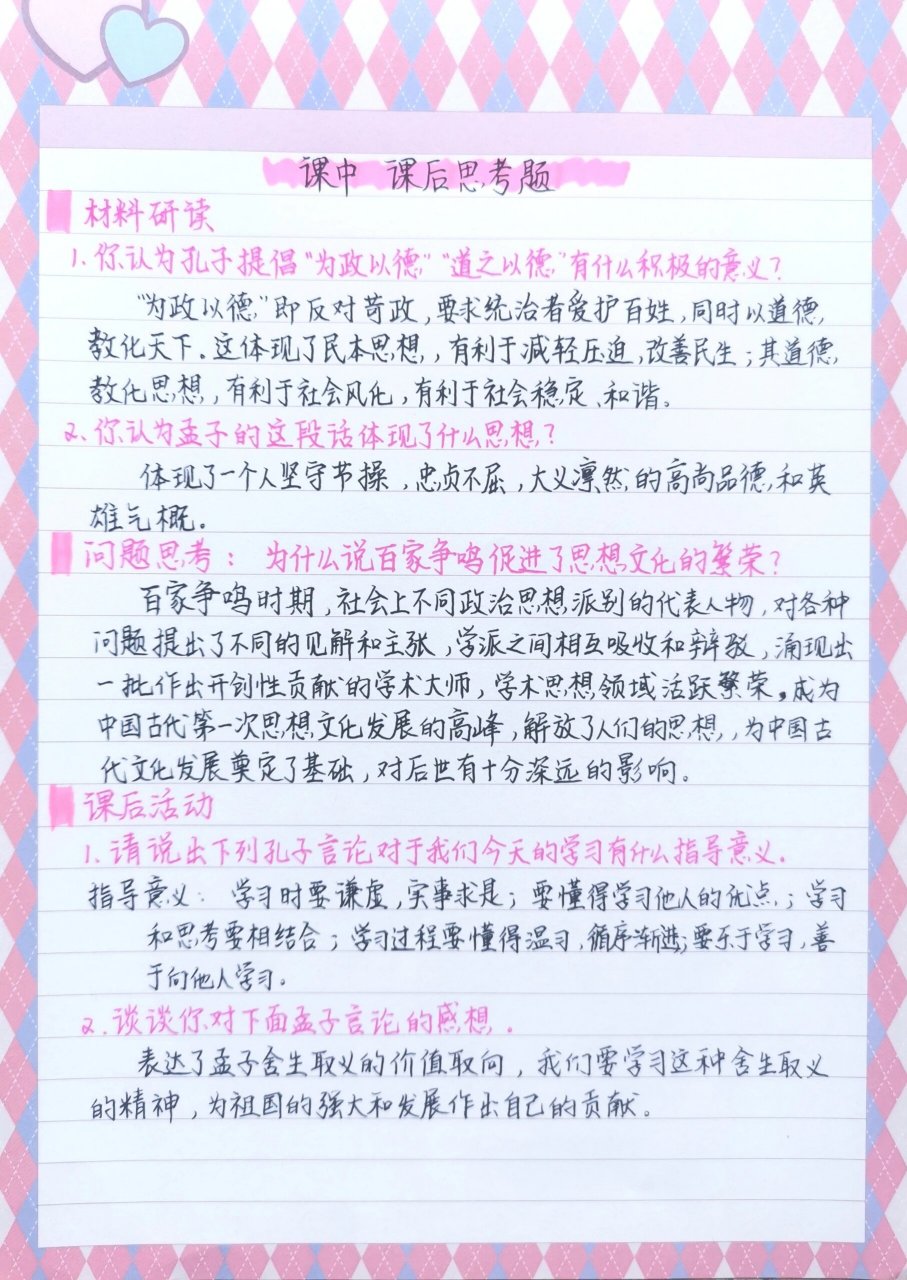 课中 课后思考题
材料研读
1、你认为孔子提倡“为政以德”“道之以德”有什么积极的意义?
“为政以德”即反对苛政,要求统治者爱护百姓,同时以道德
教化天下。这体现了民本思想,有利于减轻压迫,改善民生;其道德
教化思想,有利于社会风化,有利于社会稳定、和谐。
2、你认为孟子的这段话体现了什么思想?
体现了一个人坚守节操,忠贞不屈,大义凛然的高尚品德和英
雄气概。
问题思考: 为什么说百家争鸣促进了思想文化的繁荣?
百家争鸣时期,社会上不同政治思想派别的代表人物,对各种
问题提出了不同的见解和主张,学派之间相互吸收和辩驳,涌现出
一批作出开创性贡献的学术大师,学术思想领域活跃繁荣。成为
中国古代第一次思想文化发展的高峰,解放了人们的思想,为中国古
代文化发展奠定了基础,对后世有十分深远的影响。
课后活动
1.请说出下列孔子言论对于我们今天的学习有什么指导意义.
指导意义: 学习时要谦虚,实事求是;要懂得学习他人的优点;学习
和思考要相结合;学习过程要懂得温习,循序渐进;要乐于学习,善
于向他人学习。
2.谈谈你对下面孟子言论的感想.
表达了孟子舍生取义的价值取向,我们要学习这种舍生取义
的精神,为祖国的强大和发展作出自己的贡献。